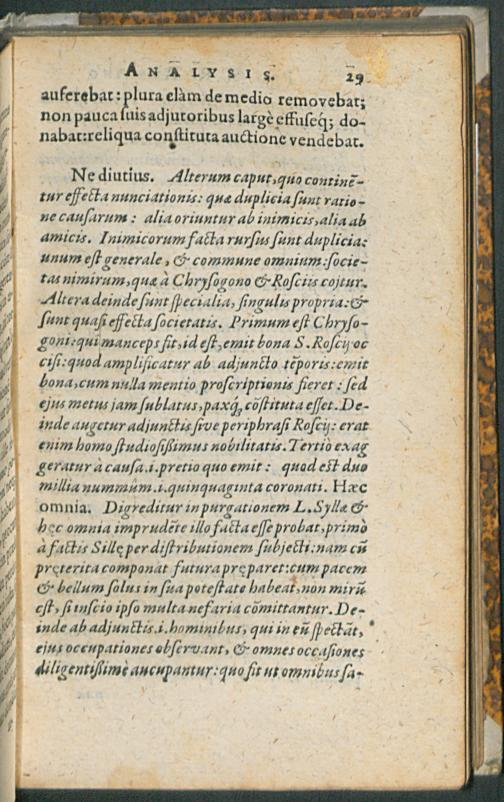 ANALYSIS. 29
auferebat: plura clàm de medio removebat;
non pauca suis adjutoribus largè effuseq́; do-
nabat: reliqua constituta auctione vendebat.
Ne diutius. Alterum caput, quo continē-
tur effecta nunciationis: quæ duplicia sunt ratio-
ne causarum: alia oriuntur ab inimicis, alia ab
amicis. Inimicorum facta rursus sunt duplicia:
unum est generale, & commune omnium: socie-
tas nimirum, quæ à Chrysogono & Rosciis coitur.
Altera deinde sunt specialia, singulis propria: &
sunt quasi effecta societatis. Primum est Chryso-
goni: qui manceps fit, id est, emit bona S. Roscij oc
cisi: quod amplificatur ab adjuncto tēporis: emit
bona, cum nulla mentio proscriptionis fieret: sed
ejus metus jam sublatus, paxq́, cōstituta esset. De-
inde augetur adjunctis sive periphrasi Roscij: erat
enim homo studiosissimus nobilitatis. Tertiò exag
geratur à causa .i. pretio quo emit: quod est duo
millia nummûm .i. quinquaginta coronati. Hæc
omnia. Digreditur in purgationem L. Syllæ &
hęc omnia imprudēte illo facta esse probat, primò
à factis Sillę per distributionem subjecti: nam cū
pręterita componat futura pręparet: cum pacem
& bellum solus in sua potestate habeat, non mirū
est, si inscio ipso multa nefaria cōmittantur. De-
inde ab adjunctis .i. hominibus, qui in eū spectāt,
ejus occupationes observant, & omnes occasiones
diligentissimè aucupantur: quo fit ut omnibus sa-